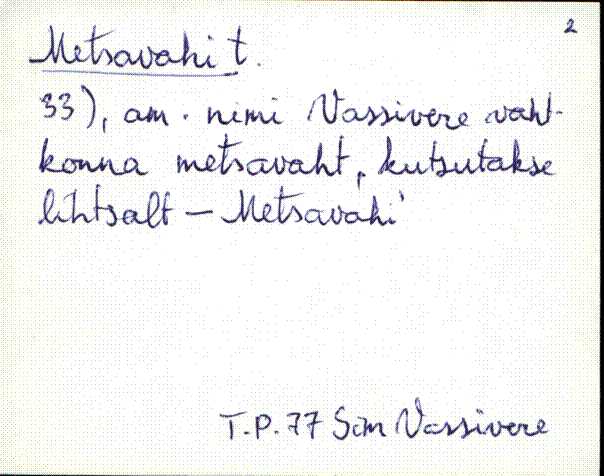 2
Metsavahi t.
33), am. nimi Vassivere vaht-
konna metsavaht, kutsutakse
lihtsalt – Metsavahi'
T.P. 77 Sim Vassivere